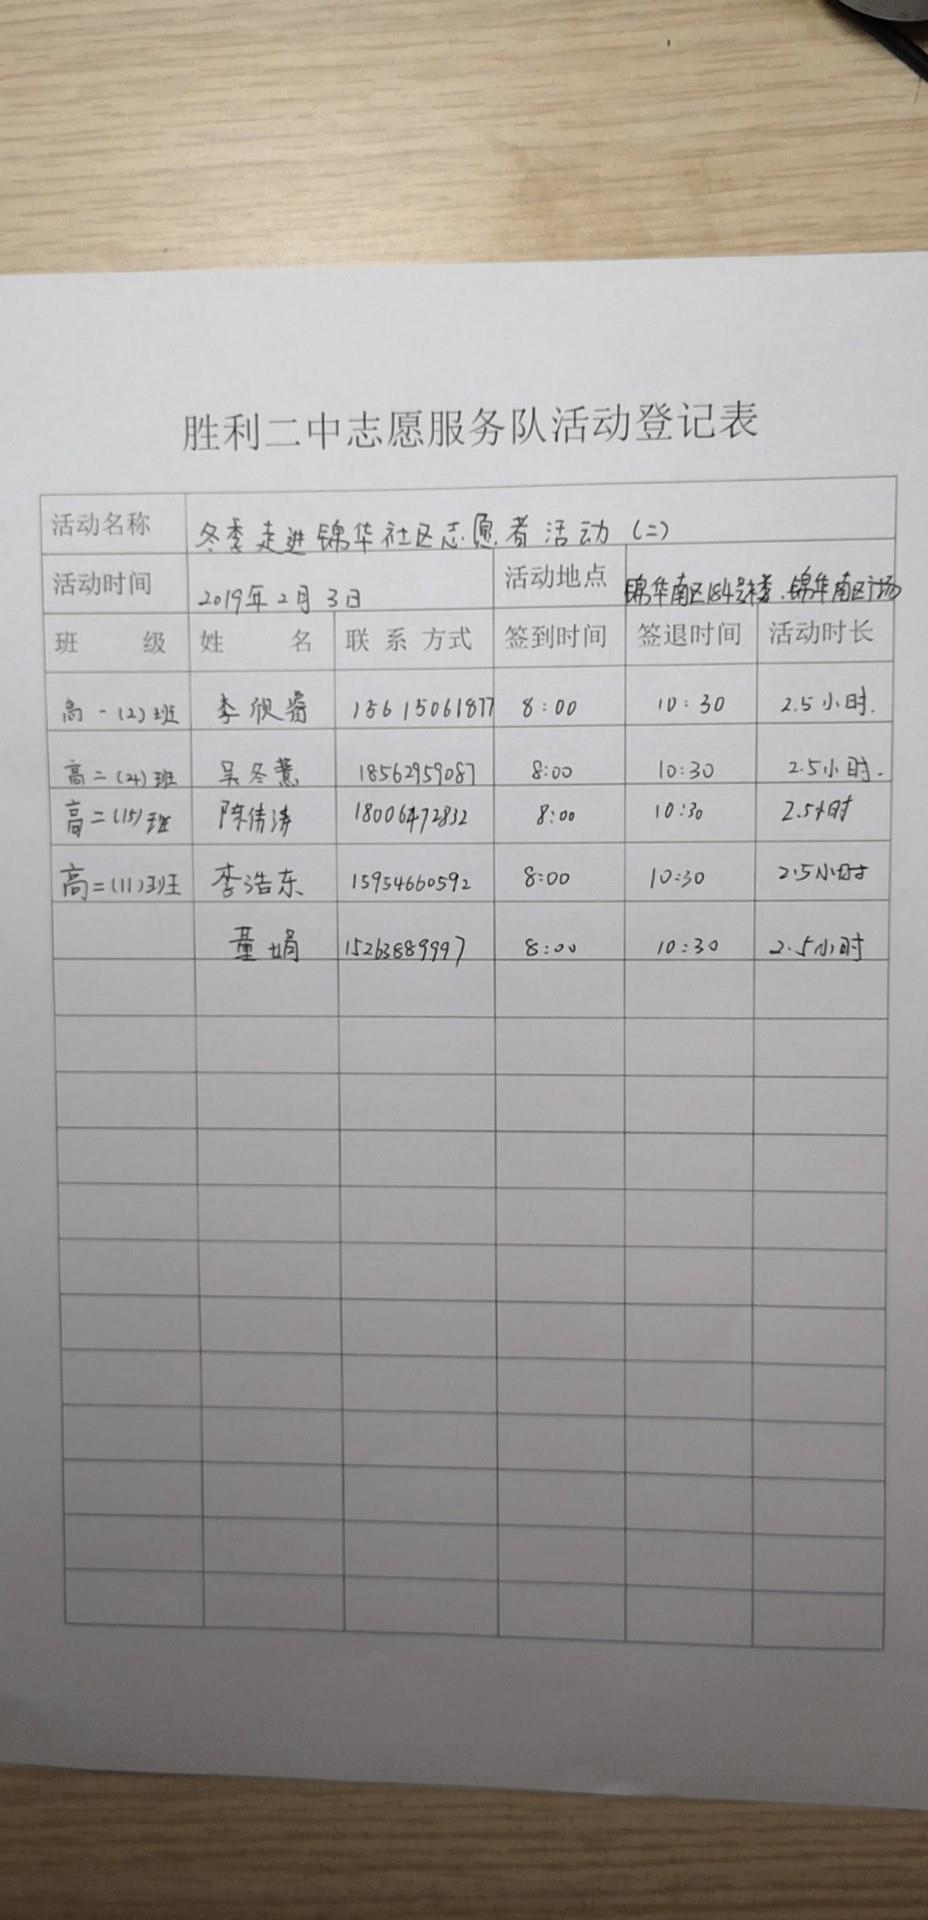 胜利二中志愿服务队活动登记表
活动名称 冬季走进锦华社区志愿者活动（二）
活动时间 2019年2月3日 活动地点 锦华南区184号楼.锦华南区广场
班 级 姓 名 联 系 方式 签到时间 签退时间 活动时长
高一（2）班 李欣睿 15615061877 8:00 10:30 2.5小时.
高二（24）班 吴冬慧 18562959087 8:00 10:30 2.5小时.
高二（15）班 陈伟涛 18006472832 8:00 10:30 2.5小时
高二（11）班 李浩东 15954660592 8:00 10:30 2.5小时
董娟 15263889997 8:00 10:30 2.5小时